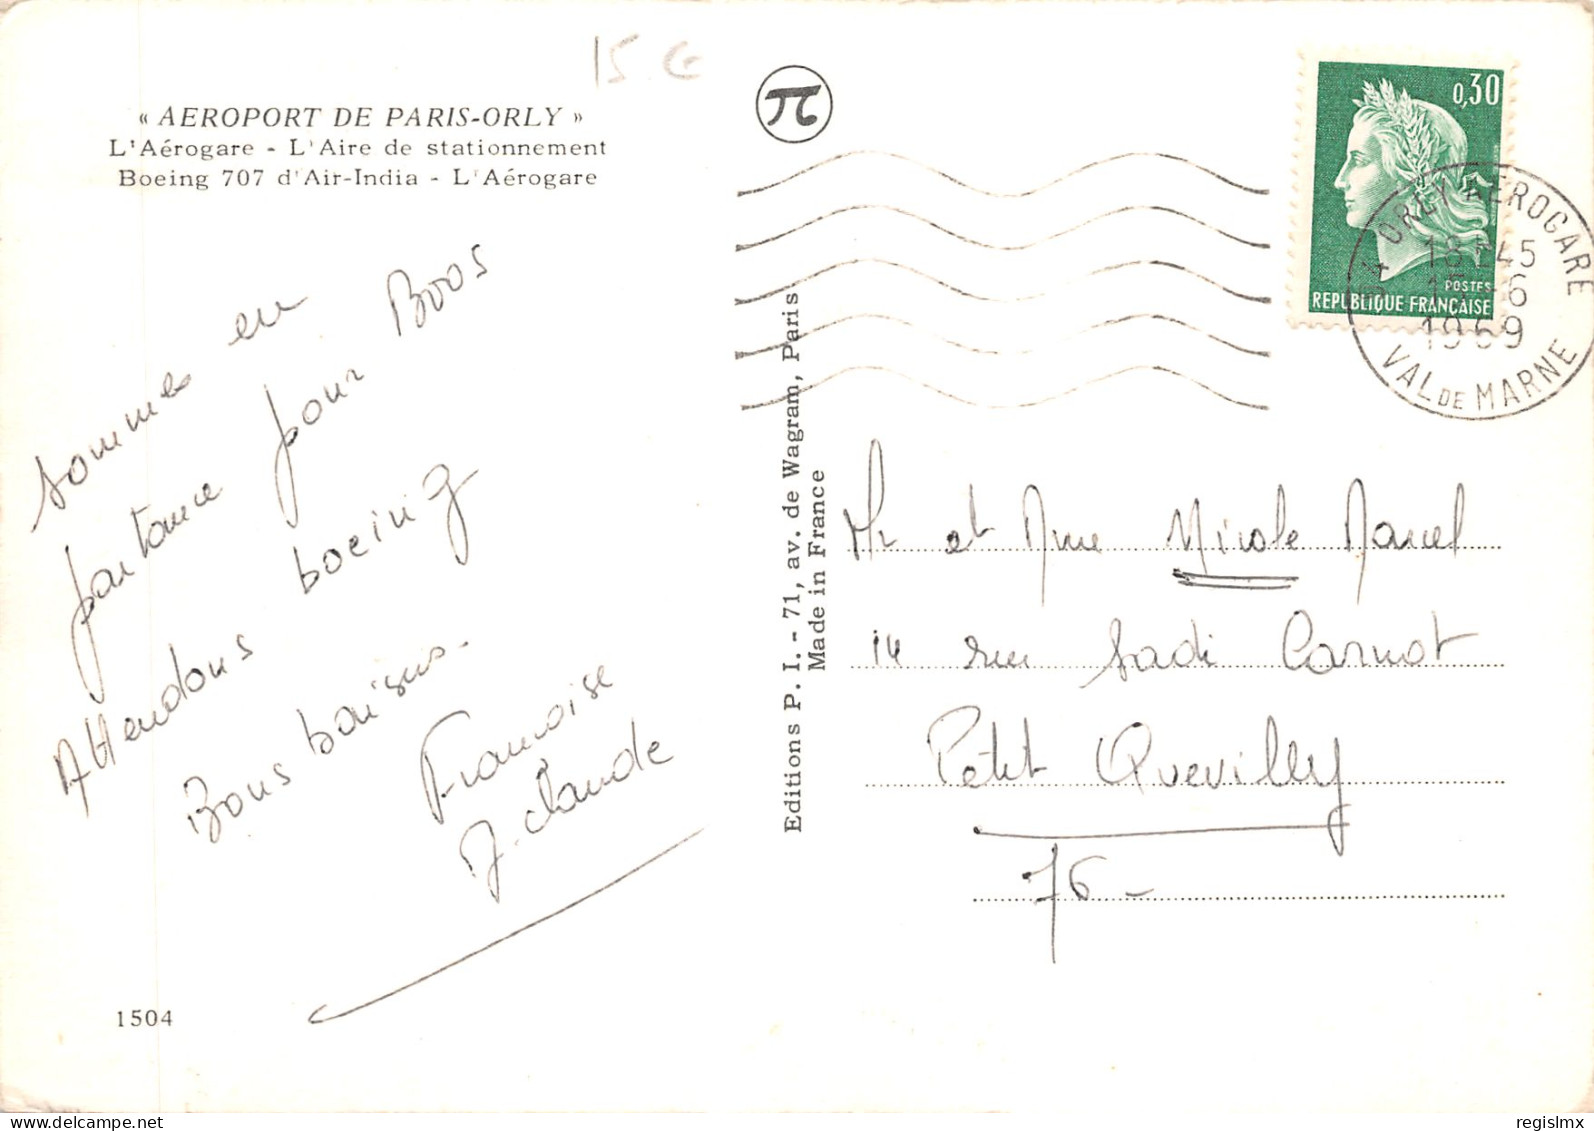 15 €
« AEROPORT DE PARIS-ORLY »
L'Aérogare - L'Aire de stationnement
Boeing 707 d'Air-India - L'Aérogare
sommes en
partance pour Boos
Attendons boeing
Bons baisers.
Francoise
J. Claude
1504
Editions P. I. - 71, av. de Wagram, Paris
Made in France
π
0,30
POSTES
REPUBLIQUE FRANÇAISE
94 ORLY AEROGARE
18H45
15-6
1969
VAL DE MARNE
Mr et Mme Nicole Marcel
14 rue Sadi Carnot
Petit Quevilly
76-
regislmx